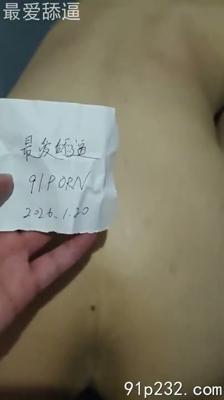 最爱舔逼
最爱舔逼
91PORN
2026.1.20
91p232.com